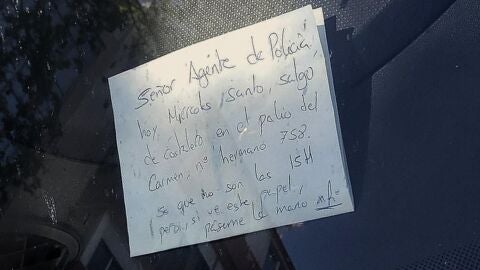 Señor Agente de Policia
hoy, Miércoles Santo, salgo
de costalero en el palio del
Carmen, nº hermano 758.
Se que no son las 15H
pero, si ve este papel,
páseme la mano